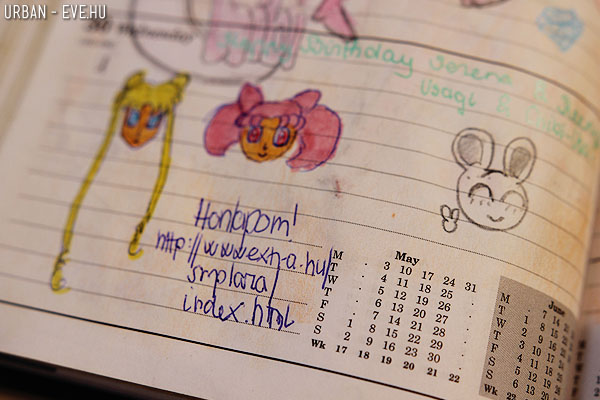 URBAN - EVE.HU
30 September
Happy Birthday Serena &
Usagi &
Honlapom!
http://www.extra.hu/
smplaza/
index.html
May
M . 3 10 17 24 31
T . 4 11 18 25 .
W . 5 12 19 26 .
T . 6 13 20 27 .
F . 7 14 21 28 .
S 1 8 15 22 29 .
S 2 9 16 23 30 .
Wk 17 18 19 20 21 22
June
M . 7 14
T 1 8 15
W 2 9 16
T 3 10 17
F 4 11 18
S 5 12 19
S 6 13 20
Wk 22